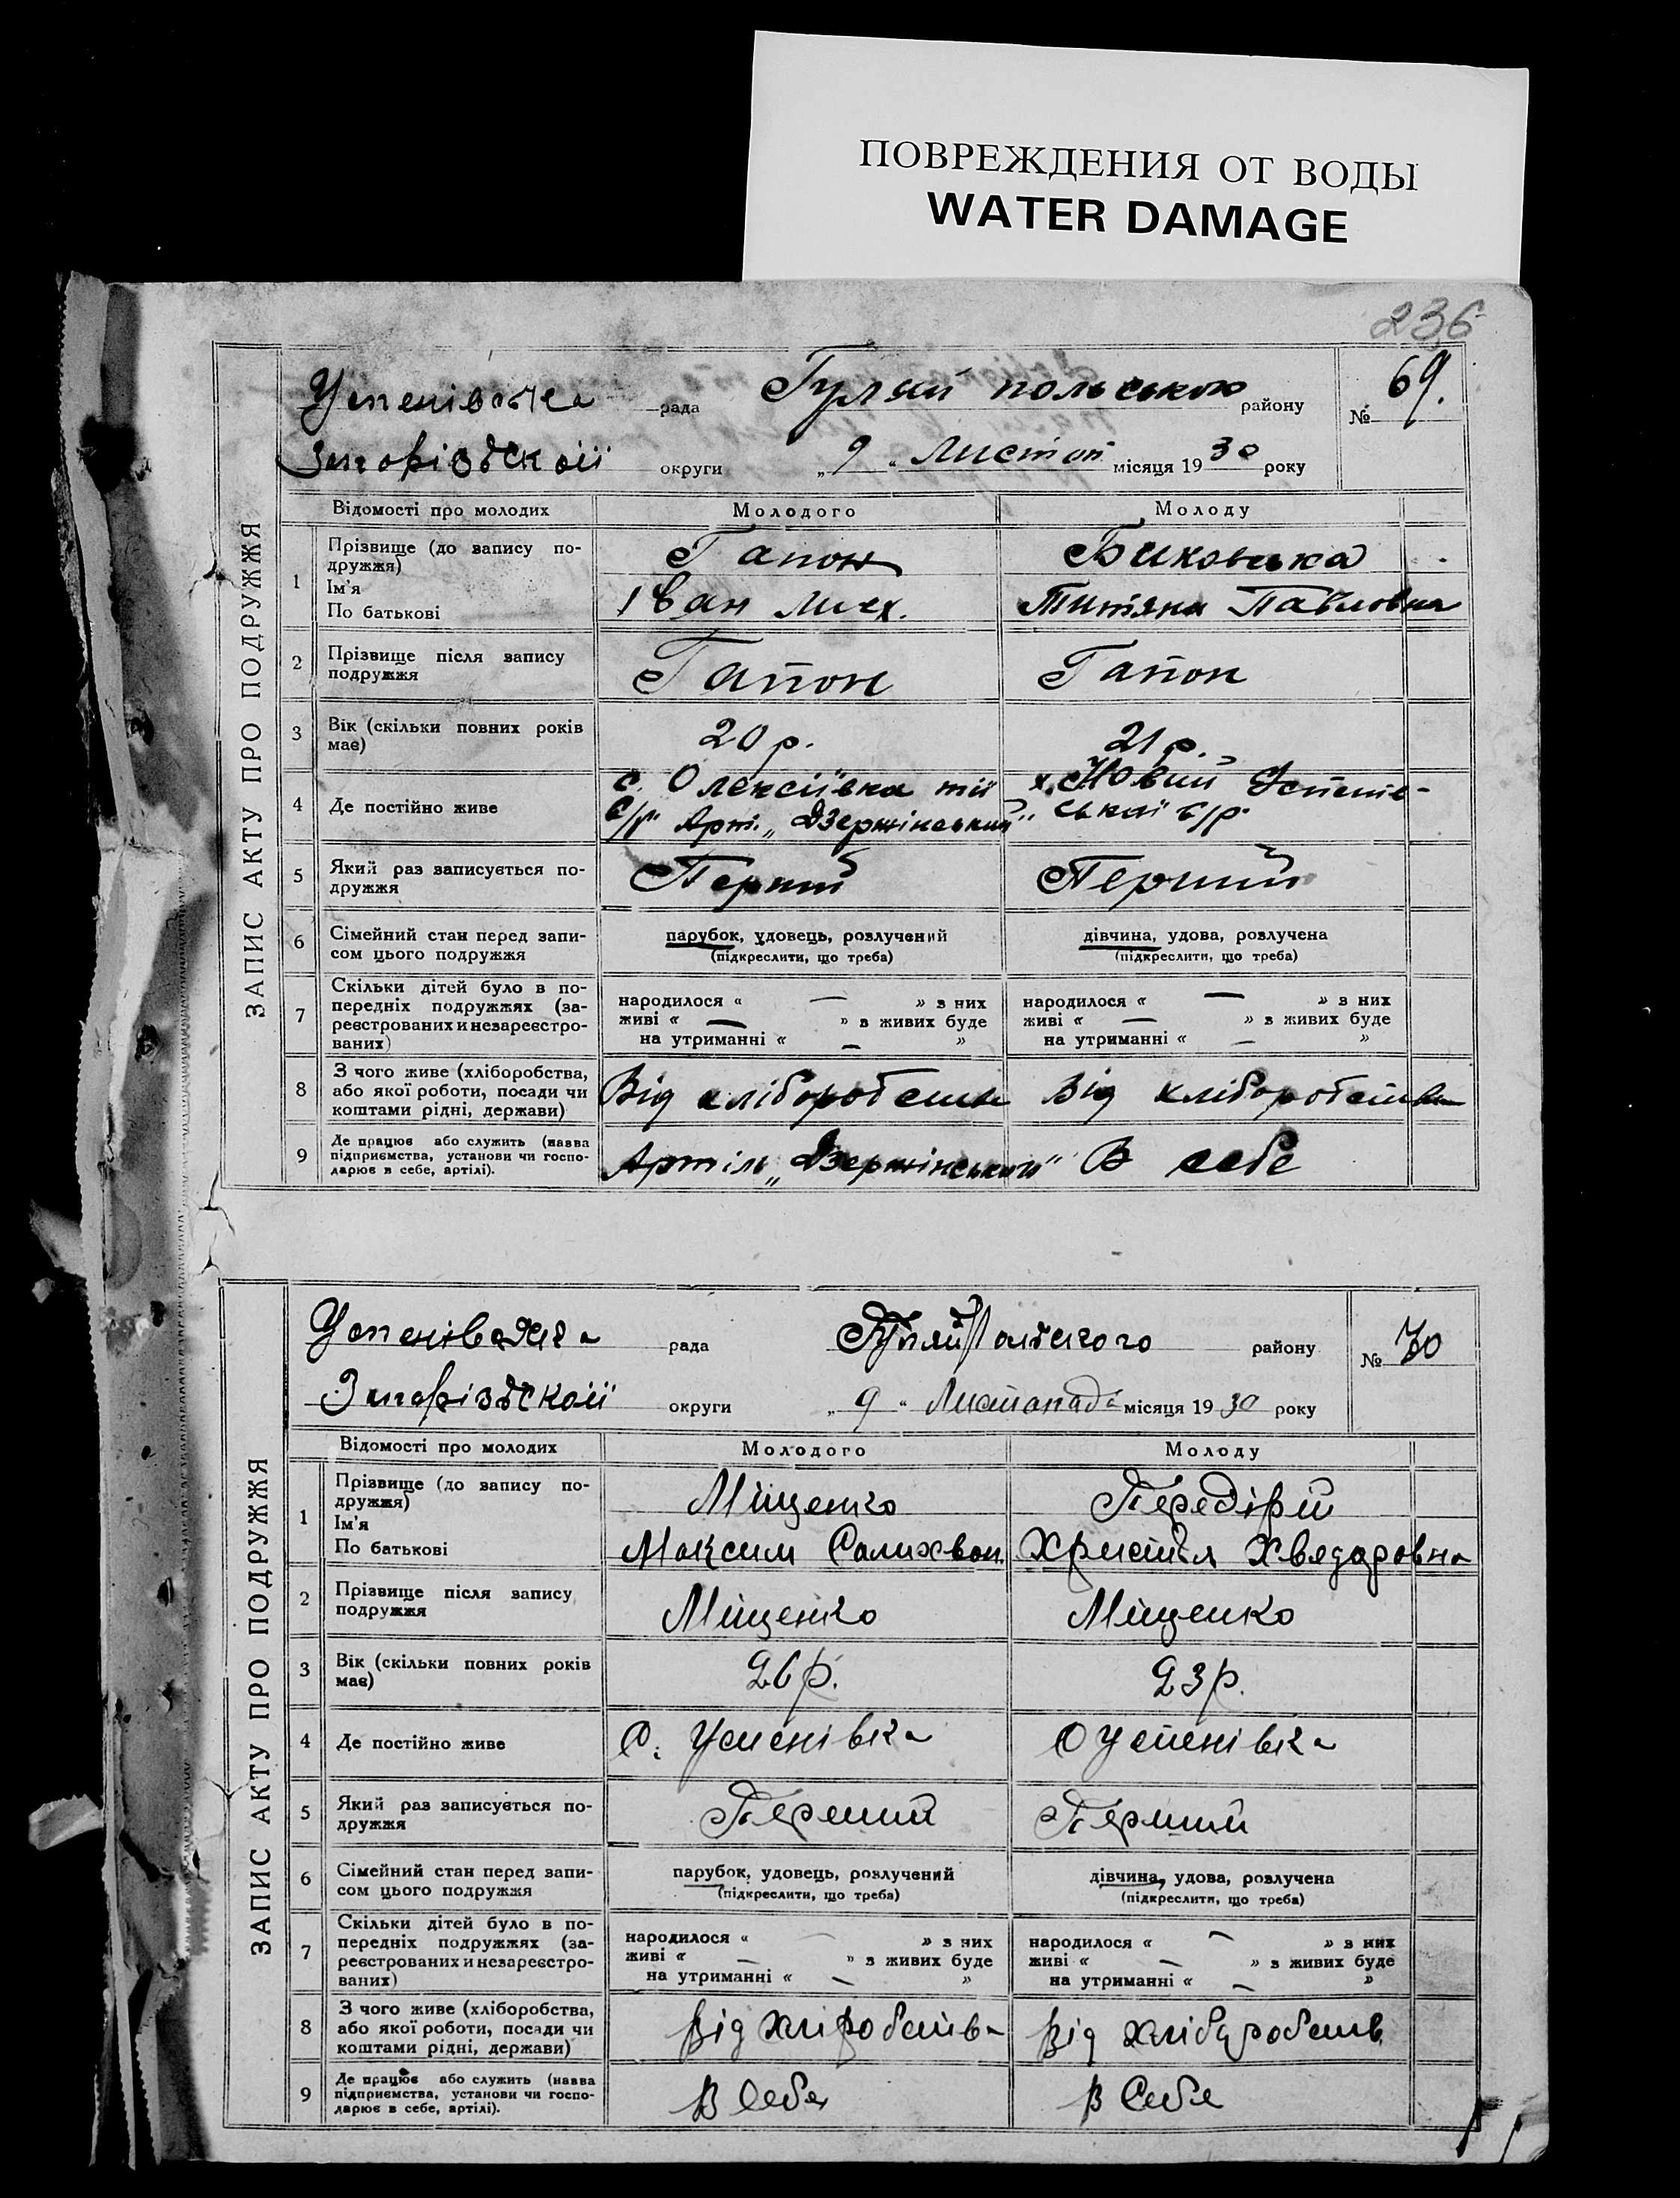 ПОВРЕЖДЕНИЯ ОТ ВОДЫ
WATER DAMAGE
236
ЗАПИС АКТУ ПРО ПОДРУЖЖЯ
Успенівська рада Гуляй польського району № 69.
Запорізської округи „ 9 “ Листоп місяця 1930 року
Відомості про молодих Молодого Молоду
1 Прізвище (до запису по-
дружжя) Гапон Биковська
Ім'я
По батькові Іван Мих. Титяна Павловна
2 Прізвище після запису
подружжя Гапон Гапон
3 Вік (скільки повних років
має) 20 р. 21 р.
4 Де постійно живе с. Олексіївка тії х. Новий Успенів-
с/р Арт. „Дзержінський" ської с/р.
5 Який раз записується по-
дружжя Перший Перший
6 Сімейний стан перед запи-
сом цього подружжя парубок, удовець, розлучений дівчина, удова, розлучена
(підкреслити, що треба) (підкреслити, що треба)
7 Скільки дітей було в по-
передніх подружжях (за-
реєстрованих и незареєстро-
ваних)
народилося « — » з них народилося « — » з них
живі « — » з живих буде живі « — » з живих буде
на утриманні « — » на утриманні « — »
8 З чого живе (хліборобства,
або якої роботи, посади чи
коштами рідні, держави) Від хліборобства Від хліборобства
9 Де працює або служить (назва
підприємства, установи чи госпо-
дарює в себе, артілі). Артіль „Дзержінський" В себе
ЗАПИС АКТУ ПРО ПОДРУЖЖЯ
Успенівська рада Гуляйпольского району № 70
Запорізської округи „ 9 “ Листопада місяця 1930 року
Відомості про молодих Молодого Молоду
1 Прізвище (до запису по-
дружжя) Міщенко Передірій
Ім'я
По батькові Максим Христья Хведоровна
2 Прізвище після запису
подружжя Міщенко Міщенко
3 Вік (скільки повних років
має) 26 р. 23 р.
4 Де постійно живе С. Успенівка С Успенівка
5 Який раз записується по-
дружжя Перший Перший
6 Сімейний стан перед запи-
сом цього подружжя парубок, удовець, розлучений дівчина, удова, розлучена
(підкреслити, що треба) (підкреслити, що треба)
7 Скільки дітей було в по-
передніх подружжях (за-
реєстрованих и незареєстро-
ваних)
народилося « — » з них народилося « — » з них
живі « — » з живих буде живі « — » з живих буде
на утриманні « — » на утриманні « — »
8 З чого живе (хліборобства,
або якої роботи, посади чи
коштами рідні, держави) Від хліробства Від хлібаробств
9 Де працює або служить (назва
підприємства, установи чи госпо-
дарює в себе, артілі). В себя В Себе